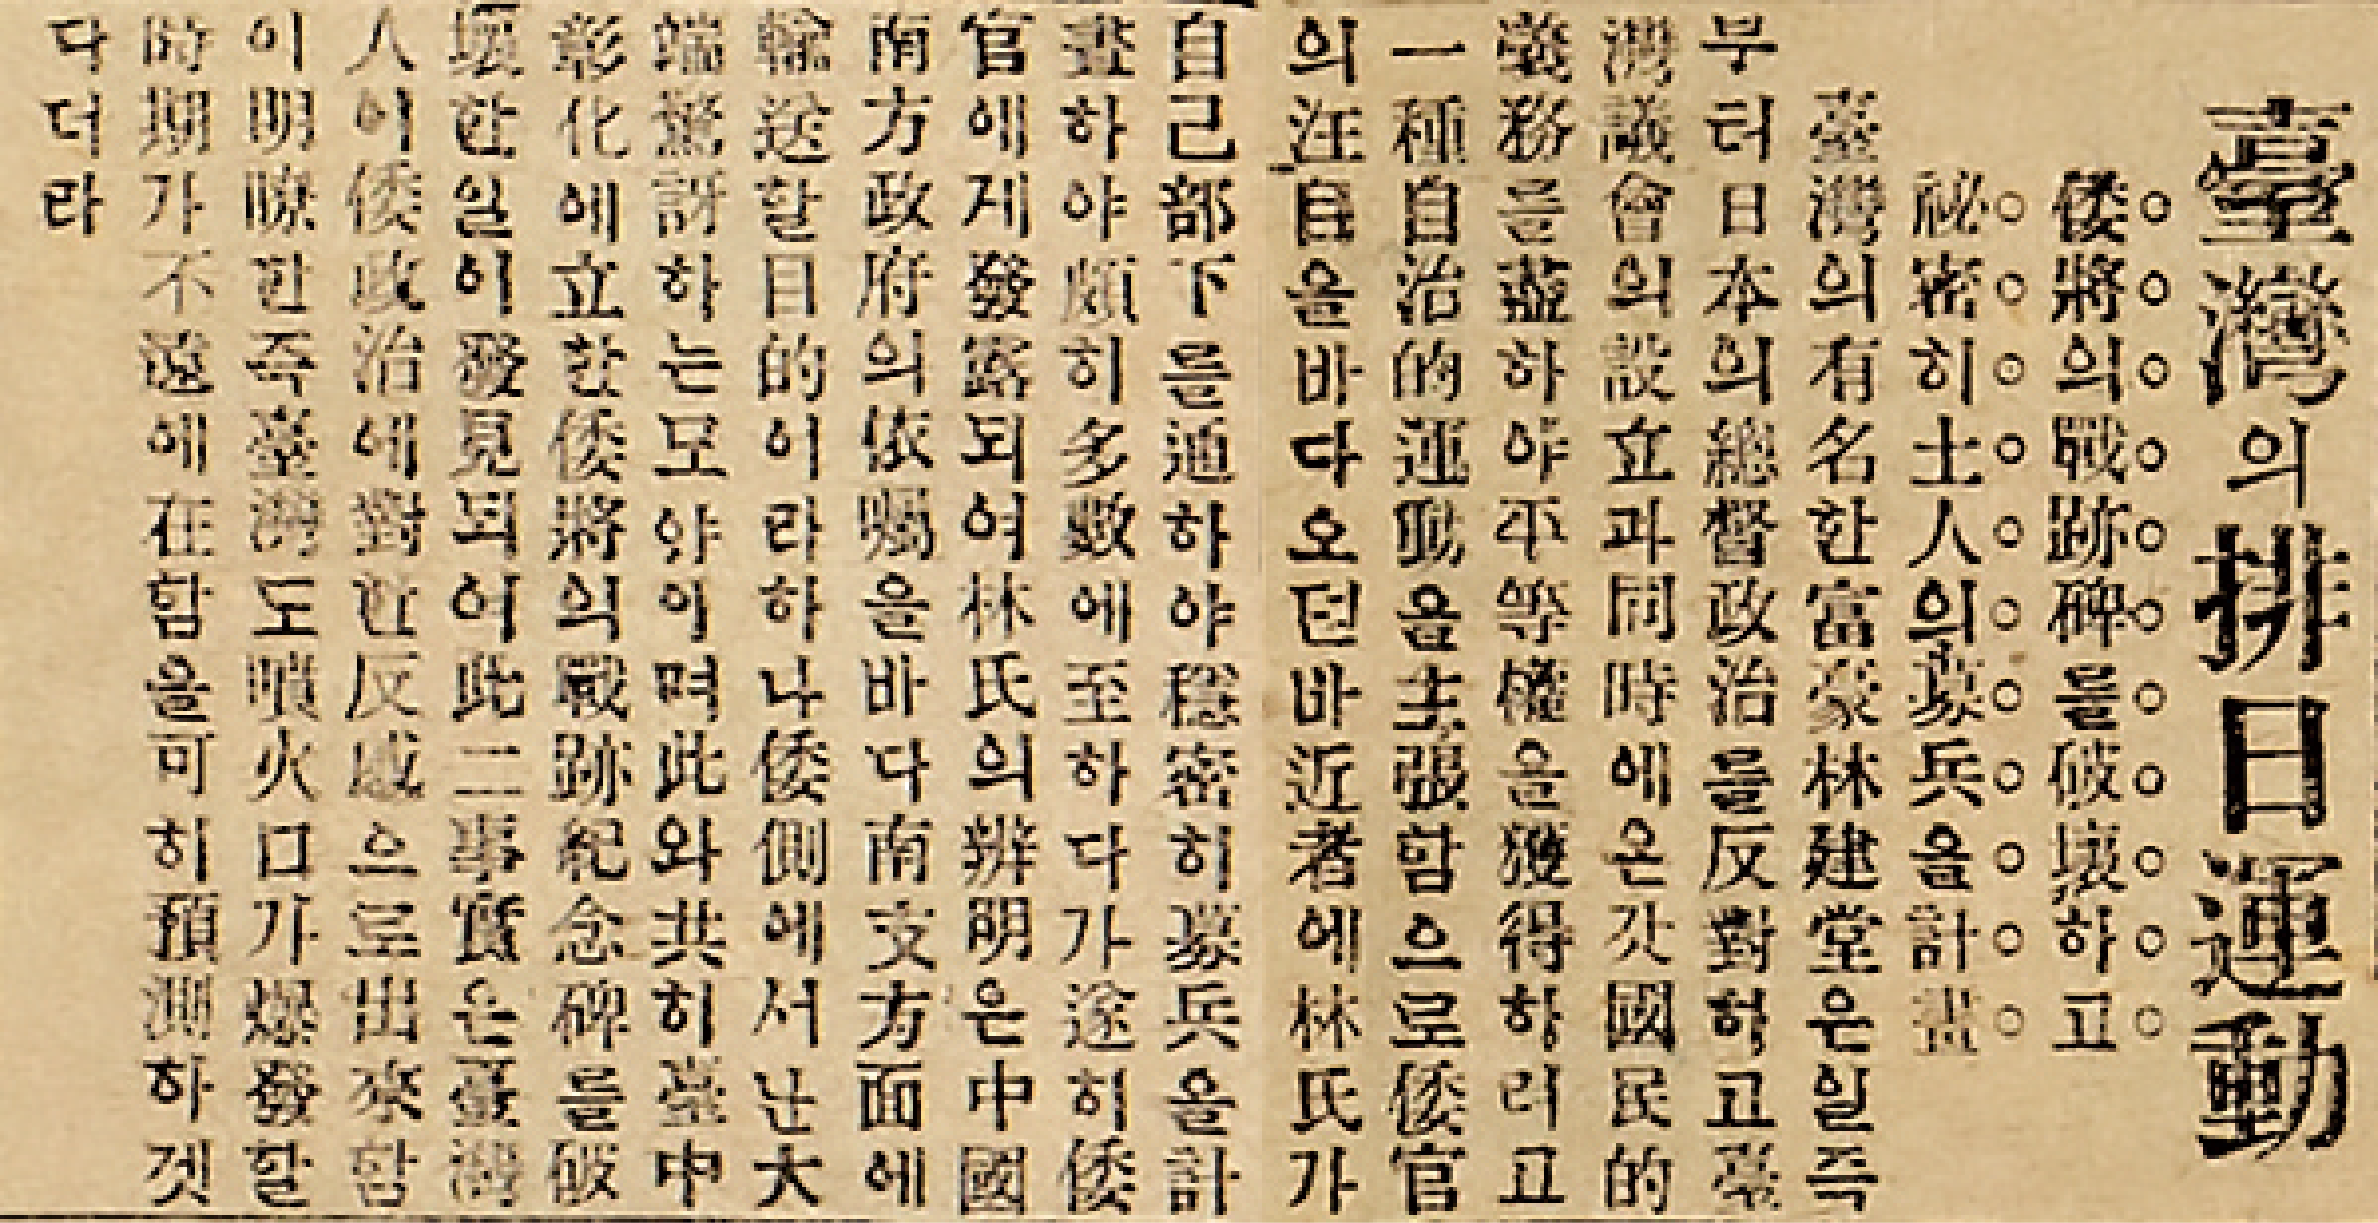 臺灣의排日運動
倭將의戰跡碑를破壞하고
祕密히士人의募兵음計畫
臺灣의有名한富豪林建堂은일즉
부터日本의總督政治를反對하고臺
灣議會의設立과同時에온갓國民的
義務를盡하야平等權을獲得하려고
一種自治的運動음主張함으로倭官
의注目을바다오던바近者에林氏가
自己部下를通하야穩密히募兵을計
畫하야頗히多數에至하다가途히倭
官에게發露되여林氏의辨明은中國
南方政府의依囑을바다南支方面에
輸送할目的이라하나倭側에서난大
端驚訝하는모양이며此와共히臺中
彰化에立한倭將의戰跡紀念碑를破
壞한일이發見되여此二事實은臺灣
人이倭政治에對한反感으로出來함
이明瞭한즉臺灣도噴火口가爆發할
時期가不遠에在함을可히預測하겟
다더라